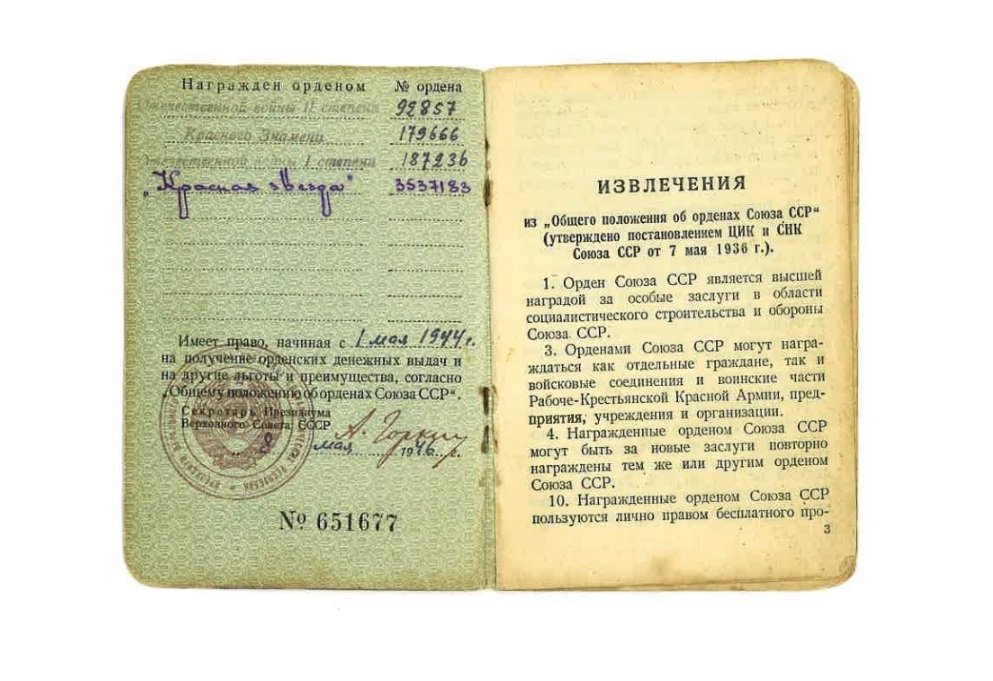 Награжден орденом № ордена
Отечественной войны II степени 92857
Красного Знамени 179666
Отечественной войны I степени 187236
„Красная звезда" 3537183
Имеет право, начиная с 1 мая 1944 г.
на получение орденских денежных выдач и
на другие льготы и преимущества, согласно
„Общему положению об орденах Союза ССР".
Секретарь Президиума
Верховного Совета СССР А. Горкин
8 мая 1946 г.
№ 651677
ИЗВЛЕЧЕНИЯ
из „Общего положения об орденах Союза ССР"
(утверждено постановлением ЦИК и СНК
Союза ССР от 7 мая 1936 г.).
1. Орден Союза ССР является высшей
наградой за особые заслуги в области
социалистического строительства и обороны
Союза ССР.
3. Орденами Союза ССР могут награ-
ждаться как отдельные граждане, так и
войсковые соединения и воинские части
Рабоче-Крестьянской Красной Армии, пред-
приятия, учреждения и организации.
4. Награжденные орденом Союза ССР
могут быть за новые заслуги повторно
награждены тем же или другим орденом
Союза ССР.
10. Награжденные орденом Союза ССР
пользуются лично правом бесплатного про-
3